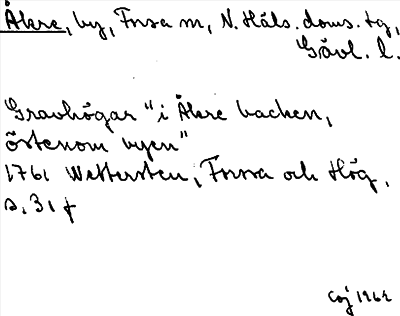 Åkre, by, Forsa sn, N. Häls. doms. tg,
Gävl. l.
Gravhögar "i Åkre backen,
östenom byen"
1761 Wettersten, Forssa och Hög,
s. 31 f
CGJ 1962